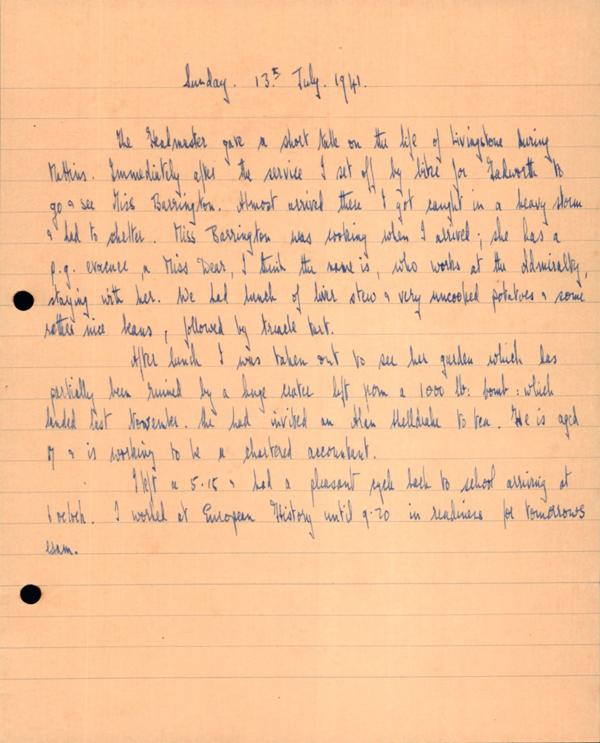 Sunday. 13th July. 1941.
The Headmaster gave a short talk on the life of Livingstone during
Mattins. Immediately after the service I set off by bike for Tadworth to
go & see Miss Barrington. Almost arrived there I got caught in a heavy storm
& had to shelter. Miss Barrington was cooking when I arrived; she has a
p.g. evacuee, a Miss Wear, I think the name is, who works at the Admiralty,
staying with her. We had lunch of liver stew & very uncooked potatoes & some
rather nice beans, followed by treacle tart.
After lunch I was taken out to see her garden which has
partially been ruined by a huge crater left from a 1000 lb: bomb: which
landed last November. She had invited an Alan to tea. He is aged
17 & is working to be a chartered accountant.
I left at 5.15 & had a pleasant cycle back to school arriving at
6 o'clock. I worked at European History until 9.20 in readiness for tomorrows
exam.